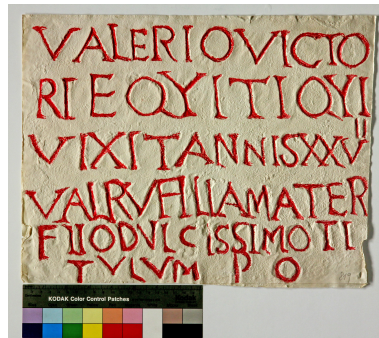 VALERIOVICTO
RIEQVITIQVI
VIXITANNISXXVII
VALRVFILLAMATER
FILIODVLCISSIMOTI
TVLVM P O
KODAK Color Control Patches